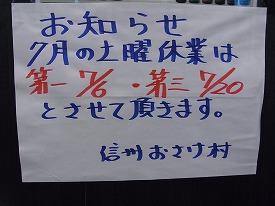 お知らせ
7月の土曜休業は
第一 7/6 ・第三 7/20
とさせて頂きます。
信州おさけ村